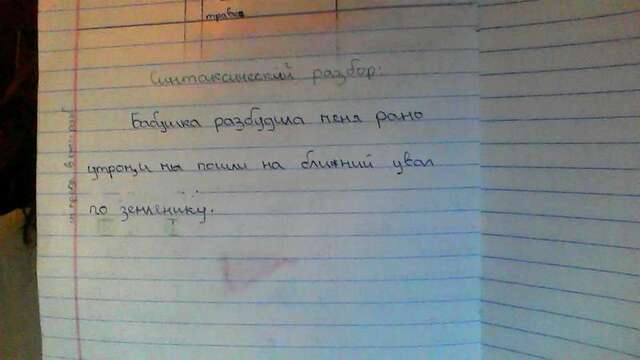 травы
Синтаксический разбор:
Бабушка разбудила меня рано
утром, и мы пошли на ближний увал
по землянику.